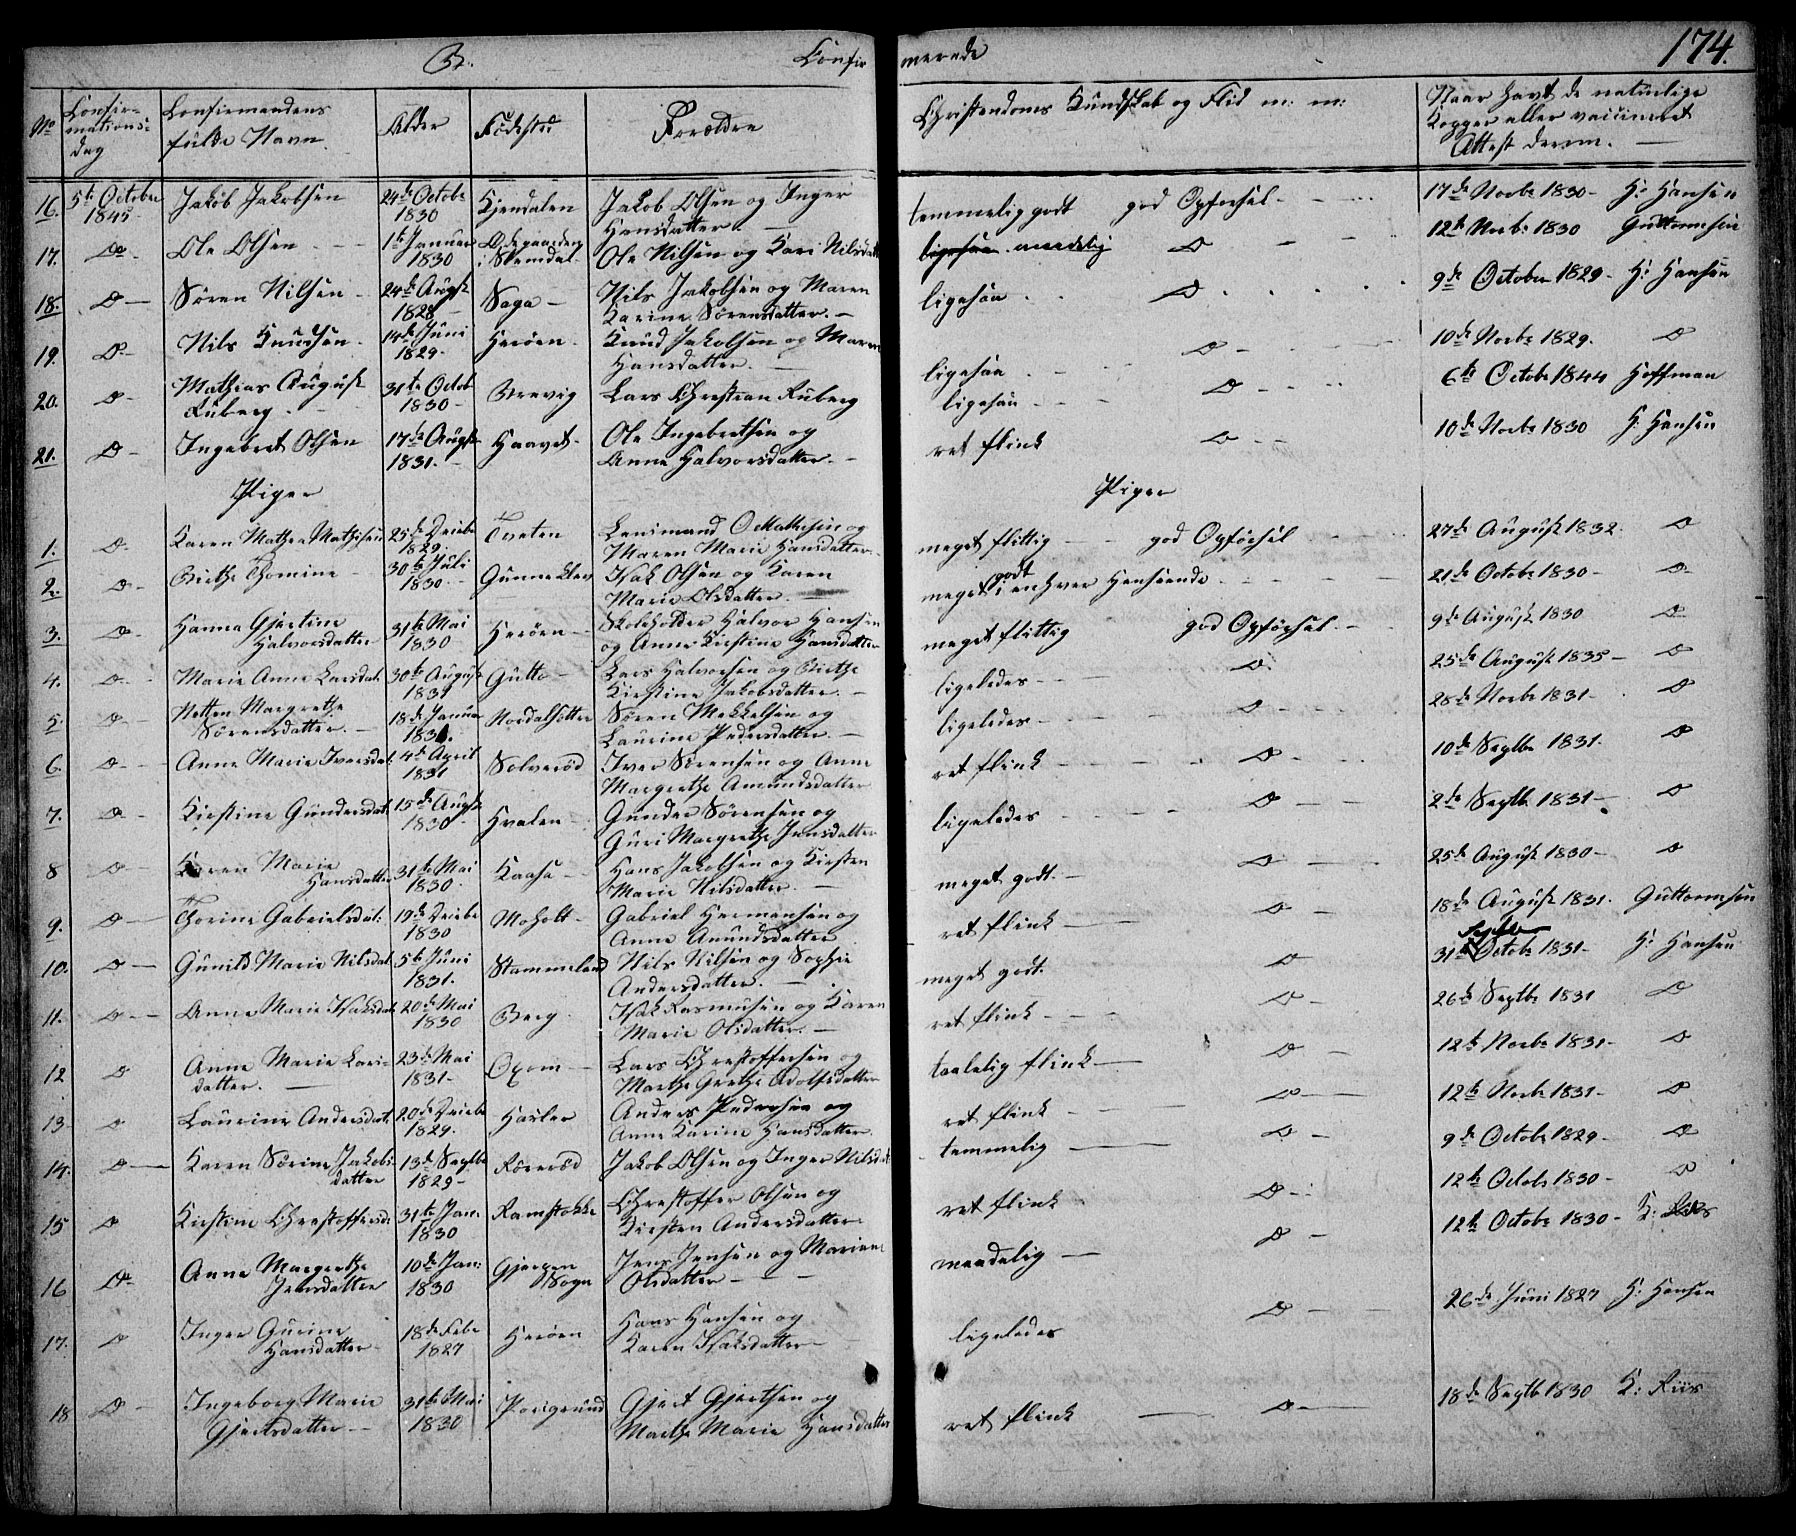 B. Confirmerede 174.
No Confirmations: dag Confirmandens fulde Navn. Alder Födested Forældre Christendoms Kundskab og Flid m: m: Naar havt de naturlige Kopper eller vaccineret Attest derom. —
16. 5te October 1845 Jakob Jakobsen 24de Octobr 1830 Kjendalen Jakob Olsen og Inger Hansdatter. temmelig godt god Opförsel - 17de Novbr 1830 - H: Hansen
17. Do Ole Olsen - - 1te Januar 1830 Ödegaarden i Skemdal. Ole Nilsen og Kari Nilsdatt ligesaa maadelig Do - - 12te Novbr 1830 Guttormsen
18. Do — Sören Nilsen - 24de Augst 1828 - Saga - Nils Jakobsen og Maren Karine Sörensdatter. - ligesaa Do 9de October 1829 - H: Hansen
19. Do - Nils Knudsen - 14de Juni 1829. Heröen - Knud Jakobsen og Maren Hansdatter. - ligesaa Do - 10de Novbr 1829. Do
20. Do - Mathias August Ruberg. - 31te Octob 1830 - Brevig Lars Christian Ruberg ligesaa - - - Do - 6te Octobr 1844 Hoffman
21. Do - Ingebret Olsen 17de Augst 1831. - Haavet - Ole Ingebretsen og Anne Halvorsdatter. - ret flink Do - - 10de Novbr 1830 H: Hansen
Piger Piger
1. Do Karen Mathea Mathisen 25de Decbr 1829. Tveten Lensmand O Mathisen og Maren Marie Hansdatter. meget flittig - god Opförsel - 27de August 1832. Do
2. Do - Birthe Thomine - 30te Juli 1830. - Gunneklev Isak Olsen og Karen Marie Olsdatter. — meget godt i enhver Henseende - 21de Octobr 1830 - Do
3. Do - Hanna Gjertine Halvorsdatter 31te Mai 1830 Heröen - Skoleholder Halvor Hansen og Anne Kirstine Hansdatter meget flittig god Opförsel - 9de August 1830 Do
4. Do - Marie Anne Larsdat. 30te August 1831 Gutte - Lars Halvorsen og Birthe Kirstine Jakobsdatter. - ligeledes - - Do 25de August 1835 - Do
5. Do - Margrethe Sörensdatter. - 18de Januar 1831. Nordalsetter Sören Mekkelsen og Laurine Pedersdatter. - ligeledes - Do - 28de Novbr 1831 - Do
6. Do - Anne Marie Iversdat. 4de April 1831 Solveröd Iver Sörensen og Anne Margrethe Amundsdatter ret flink - Do - 10de Septbr 1831. Do
7. Do - Kirstine Gundersdat. 15de Augst 1830 - Hvalen - Gunder Sörensen og Guri Margrethe Jensdatter ligeledes - Do - - 2de Septbr 1831 - Do
8 Do - Karen Marie Hansdatter 31te Mai 1830. Kaasa - Hans Jakobsen og Kirsten Marie Nilsdatter. - meget godt. - Do - 25de August 1830 - Do
9. Do — Thorine Gabrielsdat: 19de Decbr 1830 Moholt - Gabriel Hermansen og Anne Amundsdatter ret flink - Do - 18de August 1831. Guttormsen
10. Do — Gunild Marie Nilsdat. 5te Juni 1831. Stammeland Nils Nilsen og Sophie Andersdatter. - meget godt. Do 31te Septbr Octobr 1831 - H: Hansen
11. Do - - Anne Marie Isaksdat. 20de Mai 1830 Berg. Isak Rasmusen og Karen Marie Olsdatter. - ret flink - - Do - 26de Septbr 1831 Do
12 Do Anne Marie Larsdatter. — 23de Mai 1831 - Oxom - Lars Christoffersen og Marthe Grethe Adolfsdatter taalelig flink — Do - 12te Novbr 1831 - Do
13. Do Laurine Andersdat. 20de Decbr 1829. Hasler Anders Pedersen og Anne Karine Hansdatter. ret flink - — Do - 12te Novbr 1831 - Do
14. Do — Karen Sörine Jakobsdatter 13de Septbr 1829 - Röreröd Jakob Olsen og Inger Nilsdat temmelig — Do - 9de Octobr 1829 - Do
15 Do Kirstine Christoffersd: 31te Jan: 1830 Ramstokke Christoffer Olsen og Kirsten Andersdatter. ret flink Do - 12te Octobr 1830 - Do
16 Do Anne Margrethe Jensdatter 10de Jan: 1830 Gjerpen Sogn Jens Jensen og Mariene Olsdatter - - maadelig — Do - 12te Octobr 1830 - K: Riis
17. Do Inger Gurine Hansdatter - 18de Febr 1827 Heröen Hans Hansen og Karen Isaksdatter - ligeledes Do - 26de Juni 1827 H: Hansen
18 Do - Ingeborg Marie Gjertsdatter - 31te Mai 1830 Porsgrund Gjert Gjertsen og Marthe Marie Hansdatter ret flink — Do — 18de Septbr 1830 K: Riis